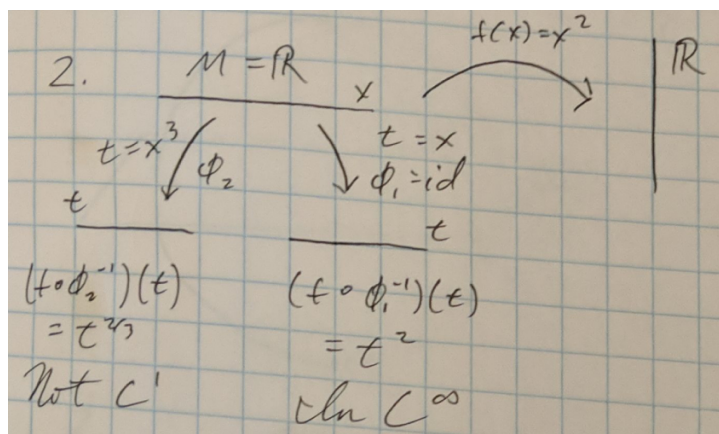 2.
M = ℝ
x
f(x)=x²
ℝ
t=x³
ϕ₂
t = x
ϕ₁=id
t
t
(f∘ϕ₂⁻¹)(t)
= t^{2/3}
Not C¹
(f∘ϕ₁⁻¹)(t)
= t²
in C^∞